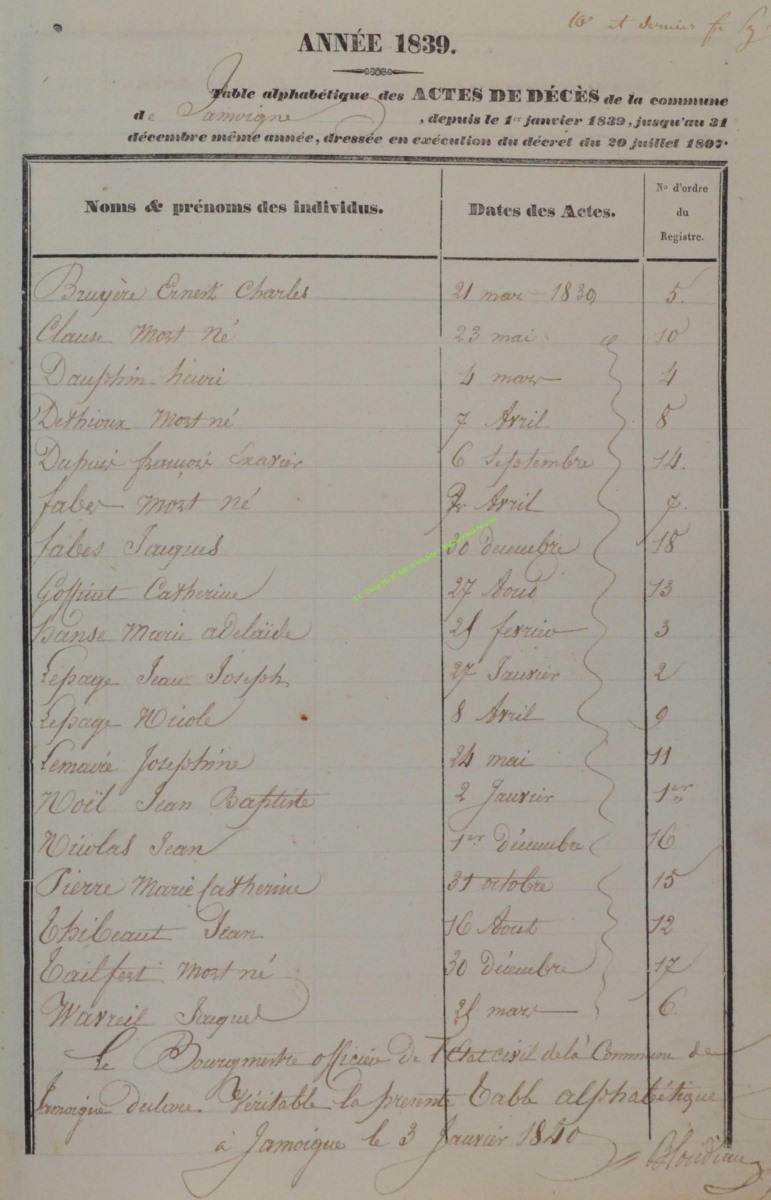 16e et dernier f
ANNÉE 1839.
Table alphabétique des ACTES DE DÉCÈS de la commune
de Jamoigne, depuis le 1er janvier 1839, jusqu'au 31
décembre même année, dressée en exécution du décret du 20 juillet 1807.
Noms & prénoms des individus. Dates des Actes. No d'ordre du Registre.
Bruyère Ernest Charles 21 mars 1839 5.
Clause Mort Né 23 mai 10
Dauphin henri 4 mars 4
Dethioux Mort né 7 Avril 8
Dupuis francois Exavier 6 Septembre 14.
faber Mort Né Avril 7.
fabes Jacques 30 Decembre 18
Goffinet Catherine 27 Aout 13
hanse Marie adelaïde fevrier 3
Lepage Jean Joseph 27 Janvier 2
Lepage Nicole 8 Avril 9
Lemaire Josephine 24 mai 11
Noël Jean Baptiste 2 Janvier 1er
Nicolas Jean 1er Décembre 16
Pierre Marie Catherine 31 octobre 15
Thibeaut Jean 16 Aout 12
Tailfert Mort né 30 Décembre 17
Jaques mars 6
Le Bourgmestre officier de l'Etat civil de la Commune de
Jamoigne declare Véritable la presente Table alphabétique
à Jamoigne le 3 Janvier 1840